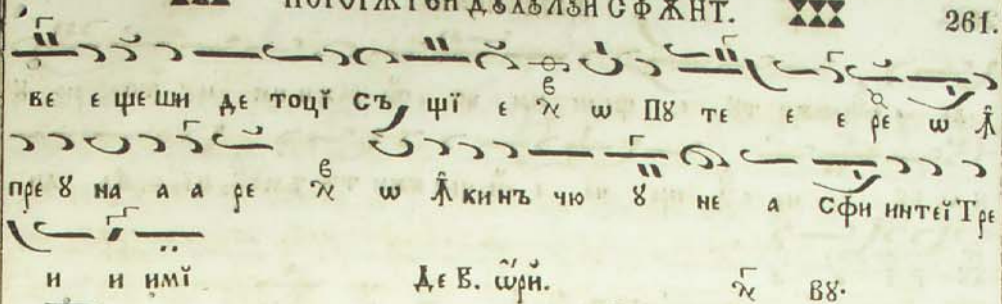 ПОГОРѪТȢЛ ДȢХȢЛȢЙ СФѪНТ. 261.
ве е ѱе ши де тоцї Съ, щї е ѡ Пȣ те е е ре ѡ ꙟ
пре ȣ на а а ре ѡ ꙟ кинъ чю ȣ не а Сфи интеї Тре
и и имї Де в҃. ѡ҆рй. вȣ.